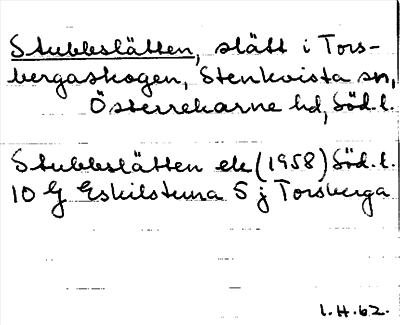 Stubbslätten, slätt i Tors-
bergaskogen, Stenkvista sn,
Österrekarne hd, Söd.l.
Stubbslätten ek (1958) Söd.l.
10 G Eskilstuna S j Torsberga
1.H.62.